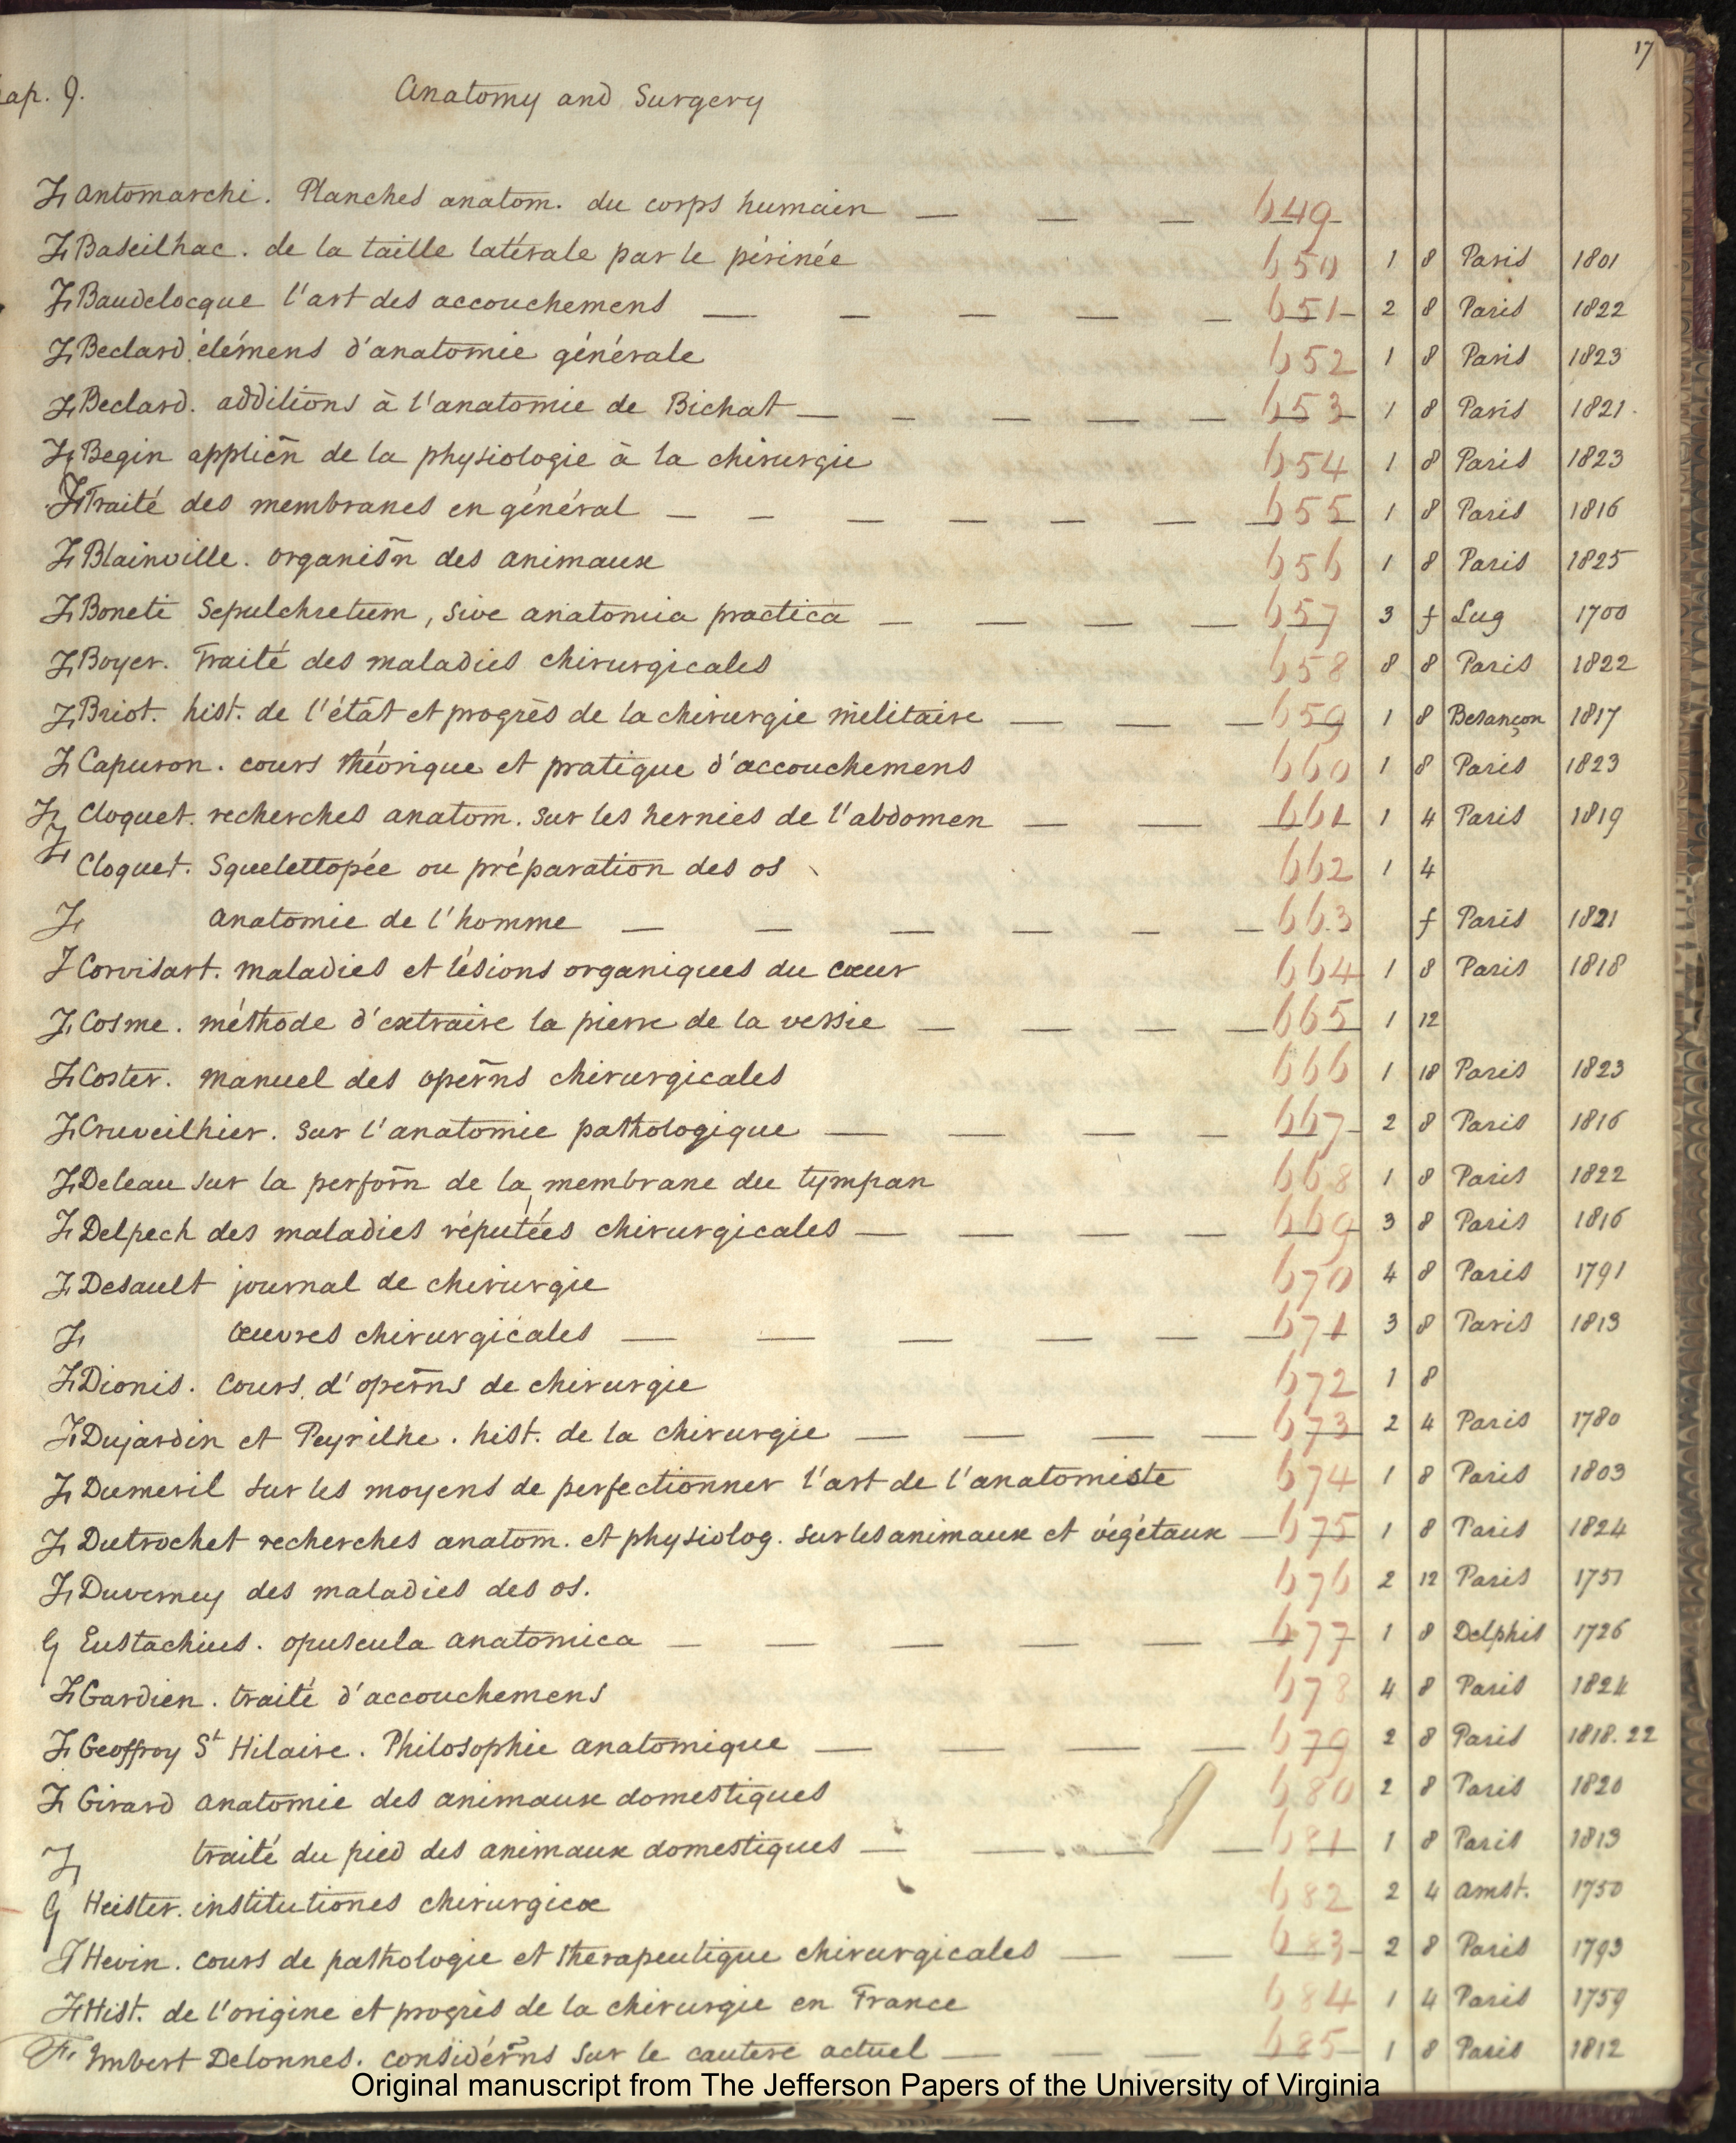 17
ap. 9. Anatomy and Surgery
F Antomarchi. Planches anatom. du corps humain — — — 649
F Baseilhac. de la taille latérale par le périnée 650 1 8 Paris 1801
F Baudelocque l'art des accouchemens — — — — — 651 2 8 Paris 1822
F Beclard. élémens d'anatomie générale 652 1 8 Paris 1823
F Beclard. additions à l'anatomie de Bichat — — — — — 653 1 8 Paris 1821.
F Begin applicñ de la physiologie à la chirurgie 654 1 8 Paris 1823
F Traité des membranes en général — — — — — — 655 1 8 Paris 1816
F Blainville. organisñ des animaux 656 1 8 Paris 1825
F Boneti Sepulchretum, sive anatomia practica — — — — 657 3 f Lug 1700
F Boyer. Traité des maladies chirurgicales 658 8 8 Paris 1822
F Briot. hist. de l'état et progrès de la chirurgie militaire — — — 659 1 8 Besançon 1817
F Capuron. cours théorique et pratique d'accouchemens 660 1 8 Paris 1823
F Cloquet. recherches anatom. sur les hernies de l'abdomen — — — 661 1 4 Paris 1819
F Cloquet. Squelettopée ou préparation des os 662 1 4
F anatomie de l'homme — — — — — — 663 f Paris 1821
F Corvisart. maladies et lésions organiques du cœur 664 1 8 Paris 1818
F Cosme. méthode d'extraire la pierre de la vessie — — — — 665 1 12
F Coster. manuel des operñs chirurgicales 666 1 18 Paris 1823
F Cruveilhier. sur l'anatomie pathologique — — — — 667 2 8 Paris 1816
F Deleau sur la perforñ de la membrane du tympan 668 1 8 Paris 1822
F Delpech des maladies réputées chirurgicales — — — — 669 3 8 Paris 1816
F Desault journal de chirurgie 670 4 8 Paris 1791
F œuvres chirurgicales — — — — — — 671 3 8 Paris 1813
F Dionis. cours d'operñs de chirurgie 672 1 8
F Dujardin et Peyrilhe. hist. de la chirurgie — — — — 673 2 4 Paris 1780
F Dumeril sur les moyens de perfectionner l'art de l'anatomiste 674 1 8 Paris 1803
F Dutrochet recherches anatom. et physiolog. sur les animaux et végétaux — 675 1 8 Paris 1824
F Duverney des maladies des os. 676 2 12 Paris 1751
G Eustachius. opuscula anatomica — — — — — — 677 1 8 Delphis 1726
F Gardien. traité d'accouchemens 678 4 8 Paris 1824
F Geoffroy St Hilaire. Philosophie anatomique — — — — 679 2 8 Paris 1818.22
F Girard anatomie des animaux domestiques 680 2 8 Paris 1820
F traité du pied des animaux domestiques — — — — 681 1 8 Paris 1813
G Heister. institutiones chirurgicæ 682 2 4 Amst. 1750
F Hevin. cours de pathologie et therapeutique chirurgicales — — 683 2 8 Paris 1793
F Hist. de l'origine et progrès de la chirurgie en France 684 1 4 Paris 1759
F. Imbert Delonnes. considérñs sur le cautere actuel — — — 685 1 8 Paris 1812
Original manuscript from The Jefferson Papers of the University of Virginia